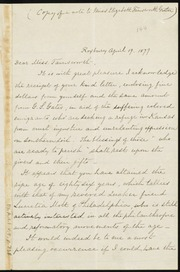 (Copy of a note to Miss Elizabeth Farnsworth
Roxbury April 19, 1879
Dear Miss Farnsworth.
It is with great pleasure I acknowledge
the receipt of your kind letter, inclosing five
dollars from yourself and the same amount
from G. L. Gates, in aid of the suffering colored
emigrants who are seeking a refuge in Kansas
from most unjust and unrelenting oppression
in Southerndom. The blessing of those "who
are ready to perish" shall rest upon the
donors in this case.
It appears that you have attained the
ripe age of eighty-six years, which tallies
with that of my dearly beloved friend
Lucretia Mott of Philadelphia who is still
actively interested in all the philanthropic
and reformatory movements of this age.
It would indeed be to me a most
pleasing occurrence if I could have the